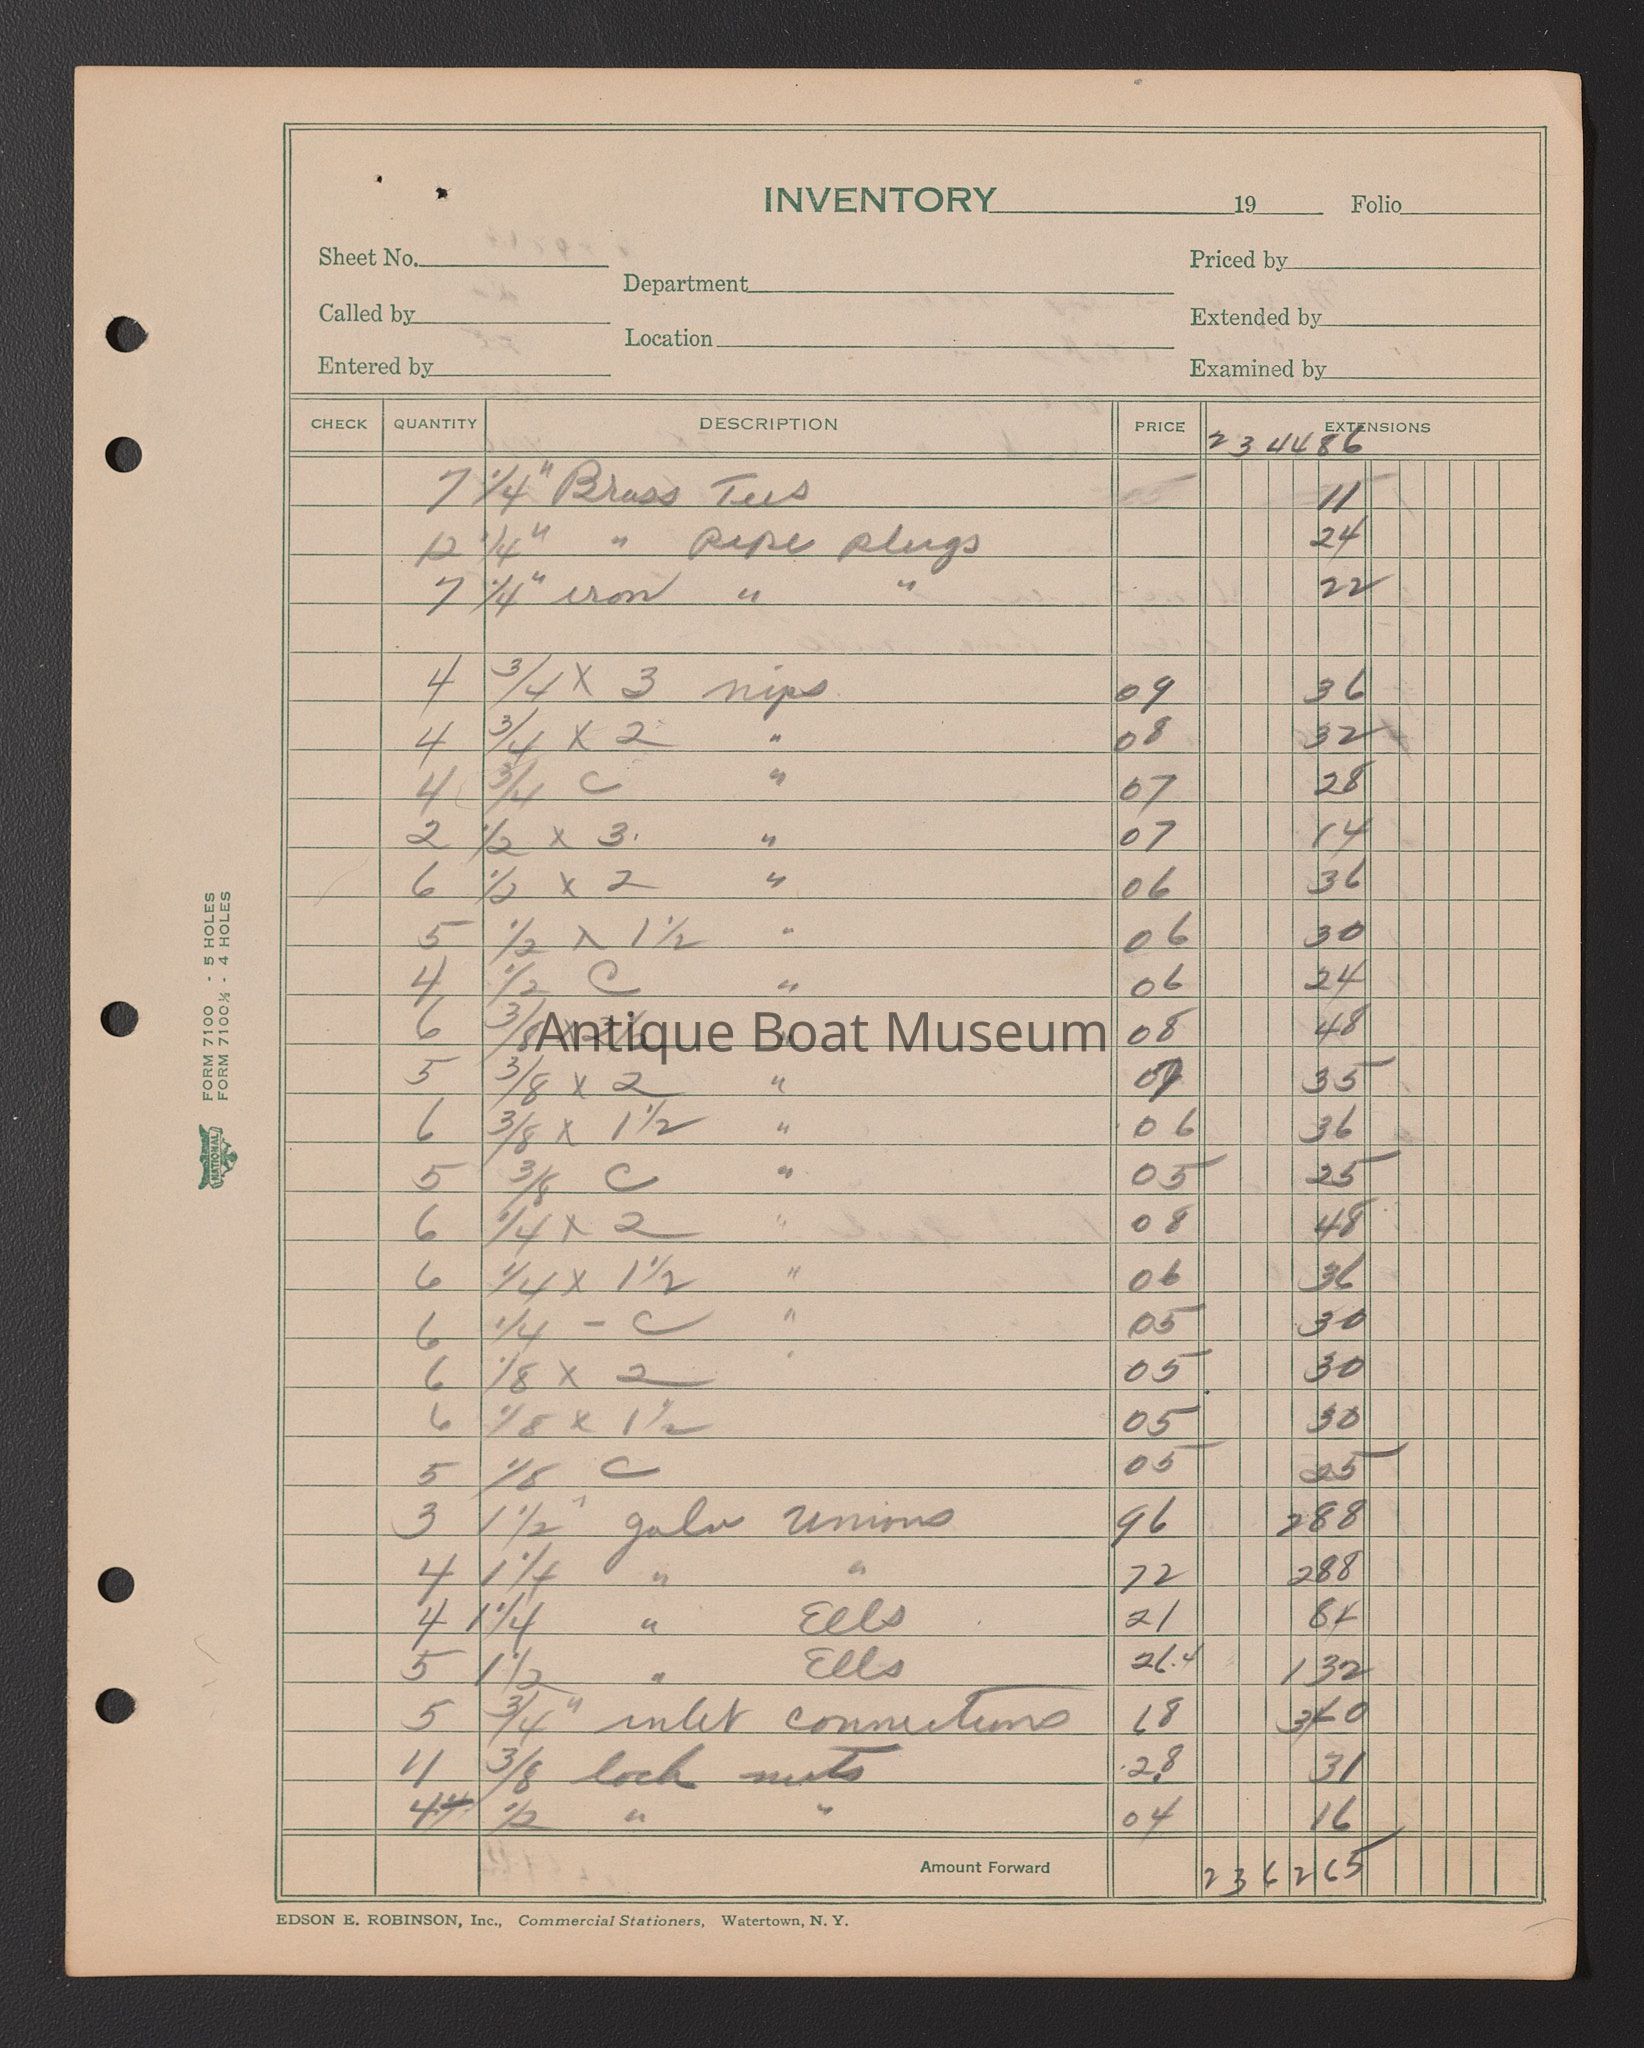 INVENTORY 19 Folio
Sheet No. Priced by
Department
Called by Extended by
Location
Entered by Examined by
CHECK QUANTITY DESCRIPTION PRICE EXTENSIONS
234486
7 1/4" Brass Tees 11
12 1/4" " pipe plugs 24
7 1/4" iron " " 22
4 3/4 x 3 nips 09 36
4 3/4 x 2 " 08 32
4 3/4 C " 07 28
2 1/2 x 3 " 07 14
6 1/2 x 2 " 06 36
5 1/2 x 1 1/2 " 06 30
4 1/2 C " 06 24
6 3/8 x 2 1/2 " 08 48
Antique Boat Museum
5 3/8 x 2 " 07 35
6 3/8 x 1 1/2 " 06 36
5 3/8 C " 05 25
6 1/4 x 2 " 08 48
6 1/4 x 1 1/2 " 06 36
6 1/4 - C " 05 30
6 1/8 x 2 " 05 30
6 1/8 x 1 1/2 05 30
5 1/8 C 05 25
3 1 1/2" galv Unions 96 288
4 1 1/4 " " 72 288
4 1 1/4 " Ells 21 84
5 1 1/2 " Ells 26.4 132
5 3/4" inlet connections 68 340
11 3/8 lock nuts 2.8 31
4 1/2 " " 04 16
Amount Forward 236265
EDSON E. ROBINSON, Inc., Commercial Stationers, Watertown, N. Y.
FORM 7100 - 5 HOLES
FORM 7100¼ - 4 HOLES
NATIONAL